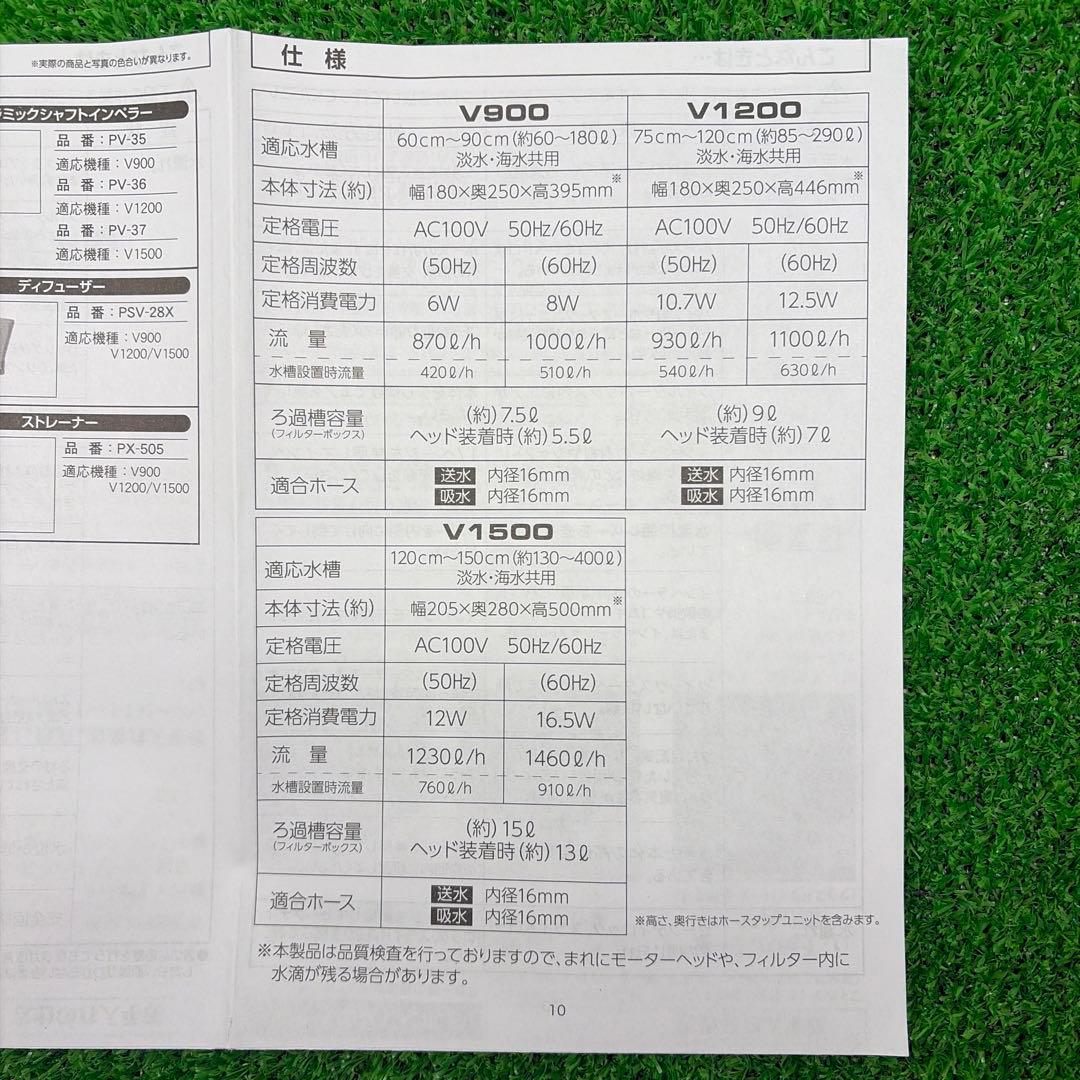 ※実際の商品と写真の色合いが異なります。
ミックシャフトインペラー
品 番：PV-35
適応機種：V900
品 番：PV-36
適応機種：V1200
品 番：PV-37
適応機種：V1500
ディフューザー
品 番：PSV-28X
適応機種：V900
V1200/V1500
ストレーナー
品 番：PX-505
適応機種：V900
V1200/V1500
仕 様
V900 V1200
適応水槽 60cm～90cm(約60～180ℓ) 75cm～120cm(約85～290ℓ)
淡水・海水共用 淡水・海水共用
本体寸法(約) 幅180×奥250×高395mm※ 幅180×奥250×高446mm※
定格電圧 AC100V 50Hz/60Hz AC100V 50Hz/60Hz
定格周波数 (50Hz) (60Hz) (50Hz) (60Hz)
定格消費電力 6W 8W 10.7W 12.5W
流 量 870ℓ/h 1000ℓ/h 930ℓ/h 1100ℓ/h
水槽設置時流量 420ℓ/h 510ℓ/h 540ℓ/h 630ℓ/h
ろ過槽容量 (約)7.5ℓ (約)9ℓ
(フィルターボックス) ヘッド装着時(約)5.5ℓ ヘッド装着時(約)7ℓ
適合ホース 送水 内径16mm 送水 内径16mm
吸水 内径16mm 吸水 内径16mm
V1500
適応水槽 120cm～150cm(約130～400ℓ)
淡水・海水共用
本体寸法(約) 幅205×奥280×高500mm※
定格電圧 AC100V 50Hz/60Hz
定格周波数 (50Hz) (60Hz)
定格消費電力 12W 16.5W
流 量 1230ℓ/h 1460ℓ/h
水槽設置時流量 760ℓ/h 910ℓ/h
ろ過槽容量 (約)15ℓ
(フィルターボックス) ヘッド装着時(約)13ℓ
適合ホース 送水 内径16mm
吸水 内径16mm
※高さ、奥行きはホースタップユニットを含みます。
※本製品は品質検査を行っておりますので、まれにモーターヘッドや、フィルター内に
水滴が残る場合があります。
10